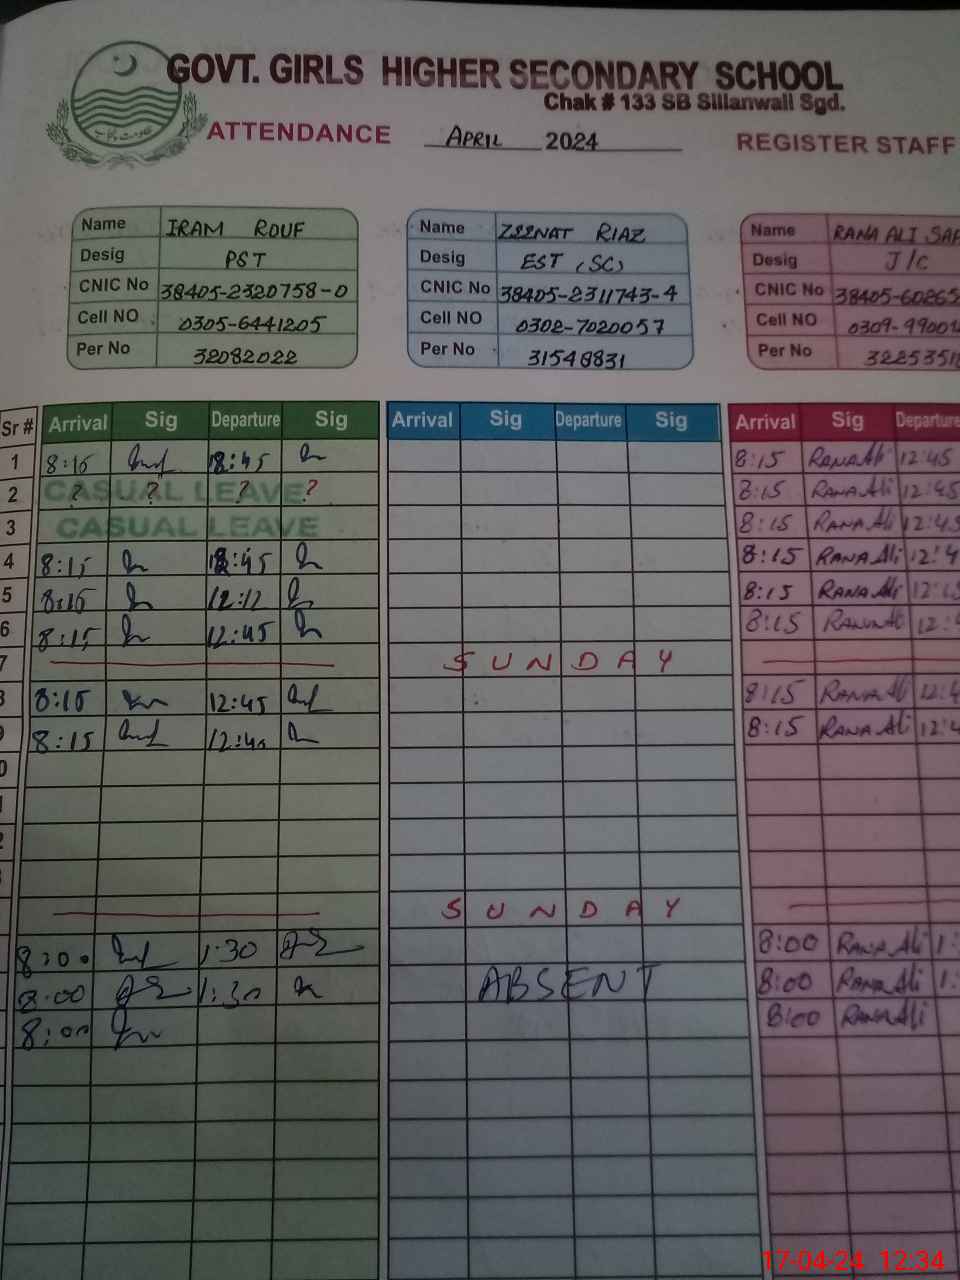 GOVT. GIRLS HIGHER SECONDARY SCHOOL
Chak # 133 SB Sillanwali Sgd.
ATTENDANCE APRIL 2024 REGISTER STAFF
Name IRAM ROUF Name ZEENAT RIAZ Name RANA ALI
Desig PST Desig EST (SC) Desig J/C
CNIC No 38405-2320758-0 CNIC No 38405-2311743-4 CNIC No 38405-60265
Cell NO 0305-6441205 Cell NO 0302-7020057 Cell NO 0309-9900
Per No 32082022 Per No 31548831 Per No 3225351
Sr # Arrival Sig Departure Sig Arrival Sig Departure Sig Arrival Sig Departure
1 8:15 12:45 8:15 RANA Ali 12:45
2 CASUAL LEAVE ? ? ? ? 8:15 RANA Ali 12:45
3 CASUAL LEAVE 8:15 RANA Ali 12:45
4 8:15 12:45 8:15 RANA Ali 12:4
5 8:15 12:12 8:15 RANA Ali 12:15
6 8:15 12:45 8:15 RANA Ali 12:
7 SUNDAY
8:15 12:45 8:15 RANA Ali 12:4
8:15 12:45 8:15 RANA Ali 12:4
SUNDAY
8:00 1:30 8:00 RANA Ali 1:
8:00 1:30 ABSENT 8:00 RANA Ali 1:
8:00 8:00 RANA Ali
17-04-24 12:34